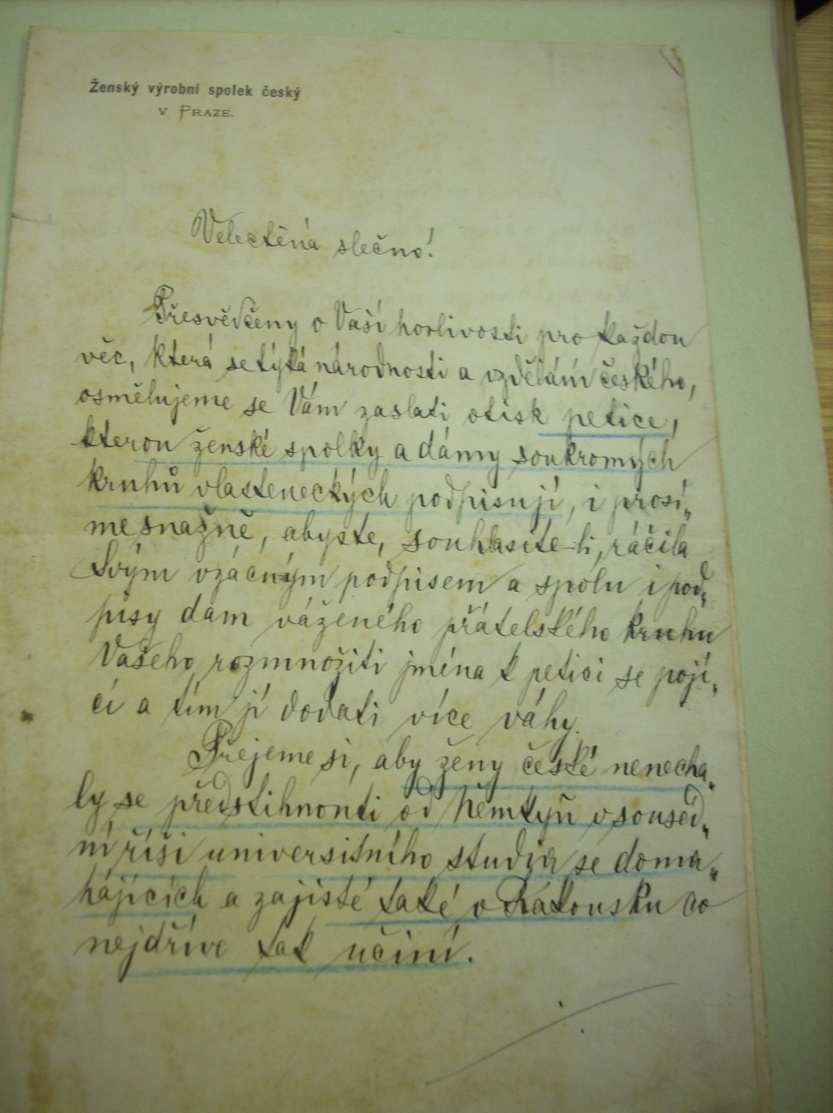 Ženský výrobní spolek český
V PRAZE.
Velectěná slečno!
Přesvědčeny o Vaší horlivosti pro každou
věc, která se týká národnosti a vzdělání českého,
osmělujeme se Vám zaslati otisk petice,
kterou ženské spolky a dámy soukromých
kruhů vlasteneckých podpisují, i prosí„
me snažně, abyste, souhlasíte-li, ráčila
Svým vzácným podpisem a spolu i pod„
pisy dam váženého přátelského kruhu
Vašeho rozmnožiti jména k petici se pojí„
cí a tím jí dodati více váhy.
Přejeme si, aby ženy české nenecha„
ly se předstihnouti od Němkyň v soused„
ní říši universitního studia se doma„
hajících a zajisté také v Rakousku co
nejdříve tak učiní.